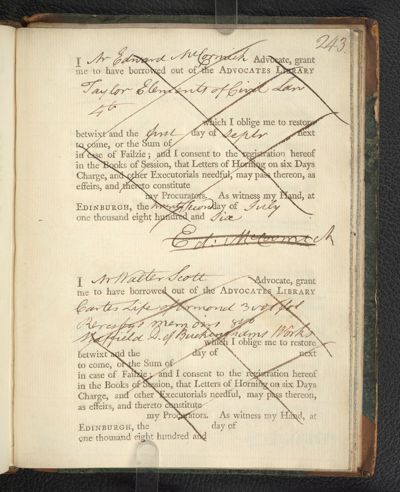 243
I Mr Edward McCormick Advocate, grant
me to have borrowed out of the ADVOCATES LIBRARY
Taylor Elements of Civil Law
4to
which I oblige me to restore
betwixt and the first day of Septr next
to come, or the Sum of
in case of Failzie; and I consent to the registration hereof
in the Books of Session, that Letters of Horning on six Days
Charge, and other Executorials needful, may pass thereon, as
effeirs, and thereto constitute
my Procurators. As witness my Hand, at
EDINBURGH, the day of July
one thousand eight hundred and Six
Ed: McCormick
I Mr Walter Scott Advocate, grant
me to have borrowed out of the ADVOCATES LIBRARY
Cartes Life of Ormond 3 vol fol
Reresbys memoirs
Sheffield D. of Buckinghams Works
which I oblige me to restore
betwixt and the day of next
to come, or the Sum of
in case of Failzie; and I consent to the registration hereof
in the Books of Session, that Letters of Horning on six Days
Charge, and other Executorials needful, may pass thereon,
as effeirs, and thereto constitute
my Procurators. As witness my Hand, at
EDINBURGH, the day of
one thousand eight hundred and